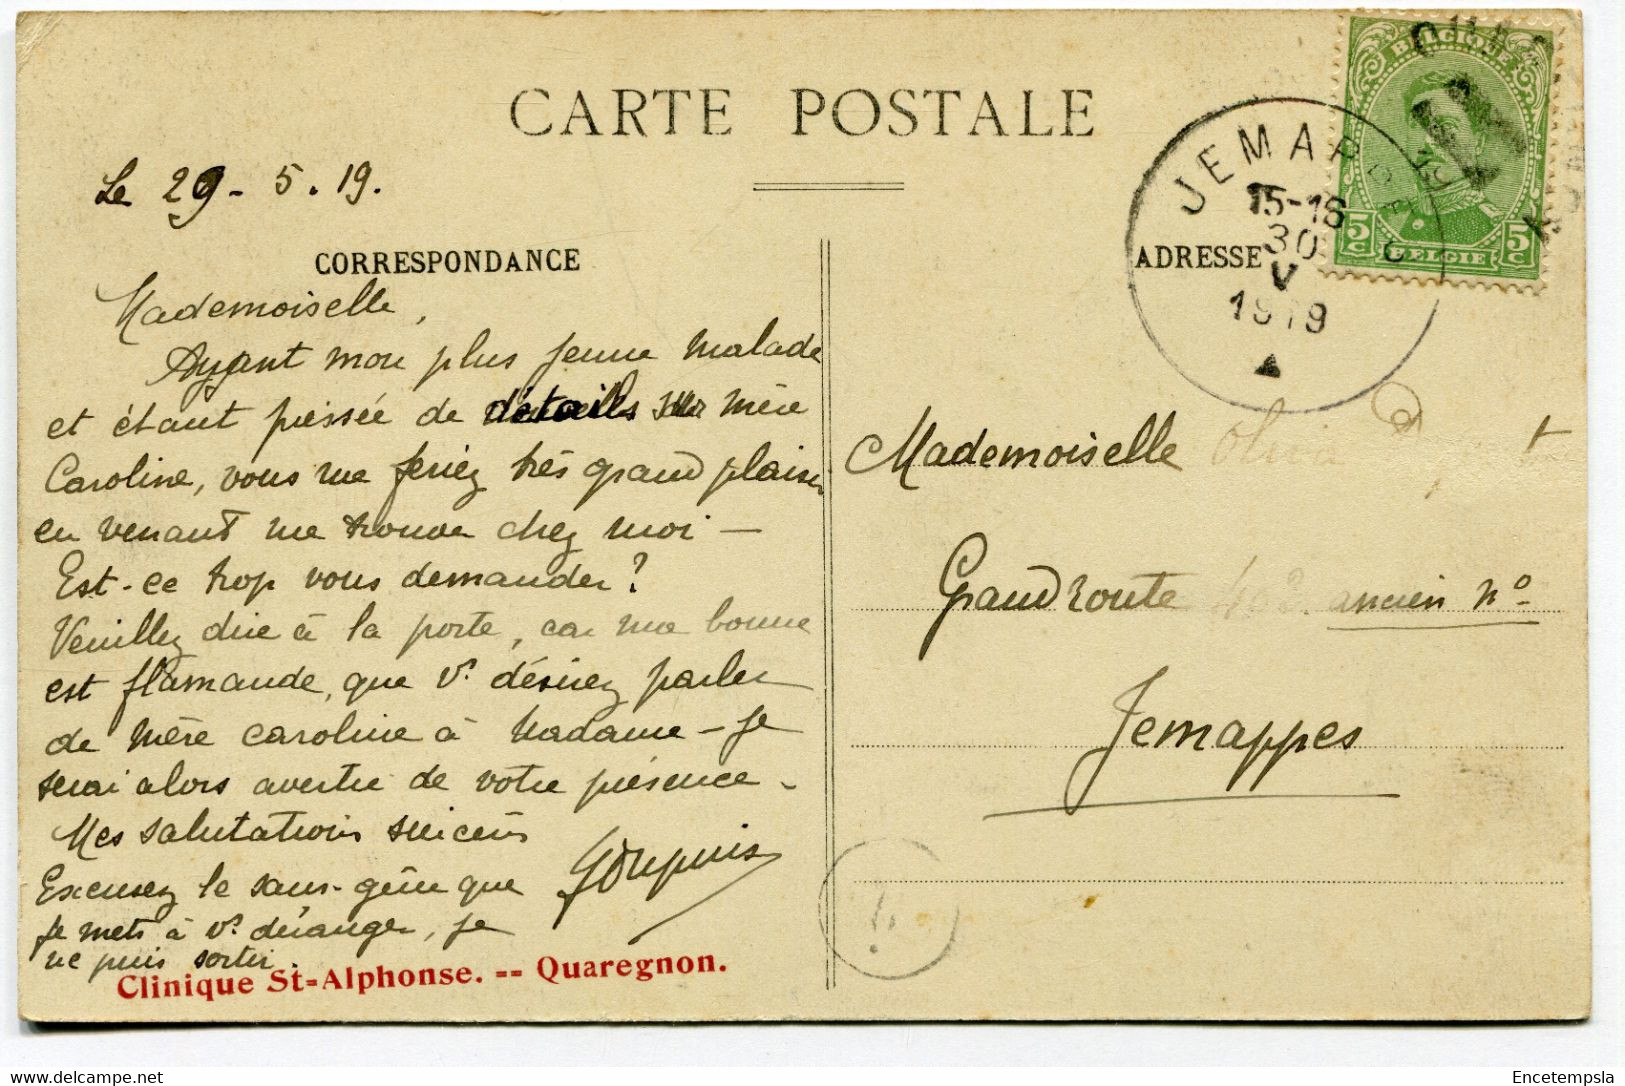 CARTE POSTALE
Le 29-5.19.
CORRESPONDANCE
Mademoiselle,
Ayant mon plus jeune malade
et étant pressée de détails sur mère
Caroline, vous me feriez très grand plaisir
en venant me trouver chez moi —
Est-ce trop vous demander?
Veuillez dire à la porte, car ma bonne
est flamande, que vs. désirez parler
de Mère Caroline à Madame — Je
serai alors avertie de votre présence -
Mes salutations sincères
Excusez le sans-gêne que
je mets à vs. déranger, je
ne puis sortir.
Clinique St-Alphonse. -- Quaregnon.
ADRESSE
JEMAPPE
15-16
30
V
1919
BELGIQUE
5c
5c
BELGIE
Mademoiselle
Grand'route ancien No
Jemappes
delcampe.net
Encetempsla